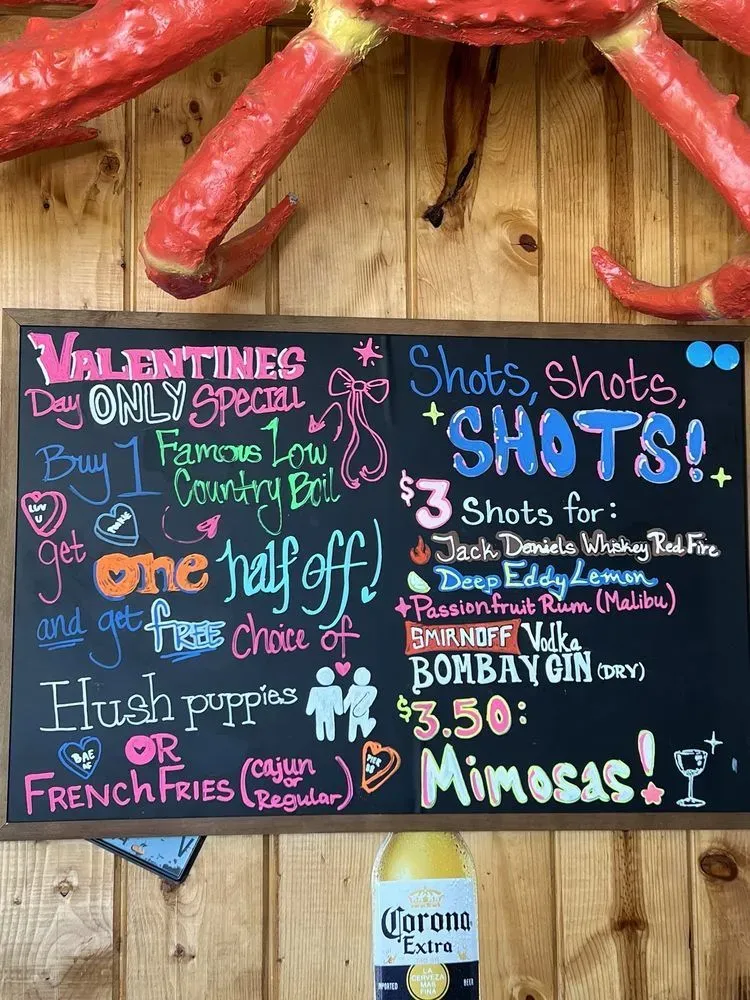 VALENTINES
Day ONLY Special
Buy 1 Famous Low
Country Boil
LUV
U
get one half off!
and get fREE choice of
Hush puppies
BAE
AF
OR
FRENCH FRIES (cajun
or
Regular)
Shots, Shots,
SHOTS!
$3 Shots for:
Jack Daniels Whiskey Red Fire
Deep Eddy Lemon
Passionfruit Rum (Malibu)
SMIRNOFF Vodka
BOMBAY GIN (DRY)
$3.50:
Mimosas!
Corona
Extra
LA
CERVEZA
MAS
FINA
IMPORTED
BEER